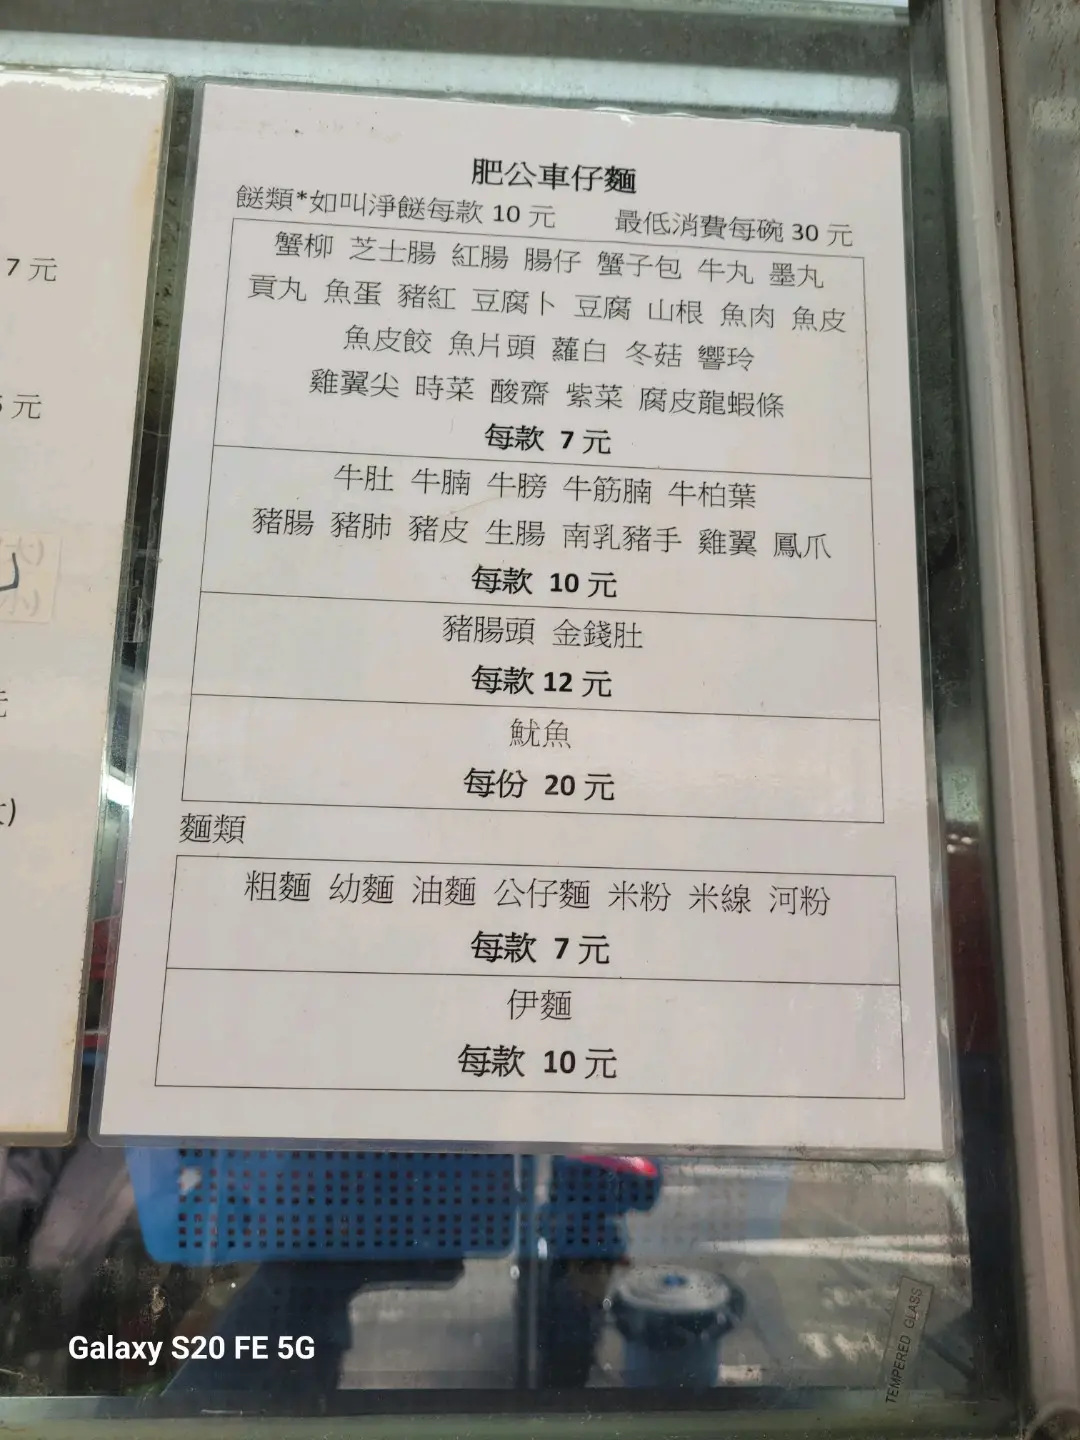 肥公車仔麵
餸類*如叫淨餸每款 10 元 最低消費每碗 30 元
蟹柳 芝士腸 紅腸 腸仔 蟹子包 牛丸 墨丸
貢丸 魚蛋 豬紅 豆腐卜 豆腐 山根 魚肉 魚皮
魚皮餃 魚片頭 蘿白 冬菇 響玲
雞翼尖 時菜 酸齋 紫菜 腐皮龍蝦條
每款 7 元
牛肚 牛腩 牛膀 牛筋腩 牛柏葉
豬腸 豬肺 豬皮 生腸 南乳豬手 雞翼 鳳爪
每款 10 元
豬腸頭 金錢肚
每款 12 元
魷魚
每份 20 元
麵類
粗麵 幼麵 油麵 公仔麵 米粉 米線 河粉
每款 7 元
伊麵
每款 10 元
7 元
元
Galaxy S20 FE 5G
TEMPERED GLASS